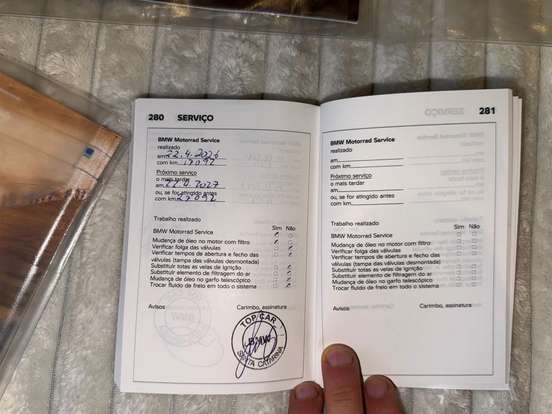 280 SERVIÇO
BMW Motorrad Service
realizado
em 22.4.2026
com km
Próximo serviço
o mais tardar
em 22.4.2027
ou, se for atingido antes
com km
Trabalho realizado
Sim Não
BMW Motorrad Service
Mudança de óleo no motor com filtro
Verificar folga das válvulas
Verificar tempos de abertura e fecho das
válvulas (tampa das válvulas desmontada)
Substituir todas as velas de ignição
Substituir elemento de filtragem do ar
Mudança de óleo no garfo telescópico
Trocar fluido de freio em todo o sistema
Avisos
Carimbo, assinatura
TOP CAR
BMW
SANTA CATARINA
281
BMW Motorrad Service
realizado
em
com km
Próximo serviço
o mais tardar
em
ou, se for atingido antes
com km
Trabalho realizado
Sim Não
BMW Motorrad Service
Mudança de óleo no motor com filtro
Verificar folga das válvulas
Verificar tempos de abertura e fecho das
válvulas (tampa das válvulas desmontada)
Substituir todas as velas de ignição
Substituir elemento de filtragem do ar
Mudança de óleo no garfo telescópico
Trocar fluido de freio em todo o sistema
Avisos
Carimbo, assinatura